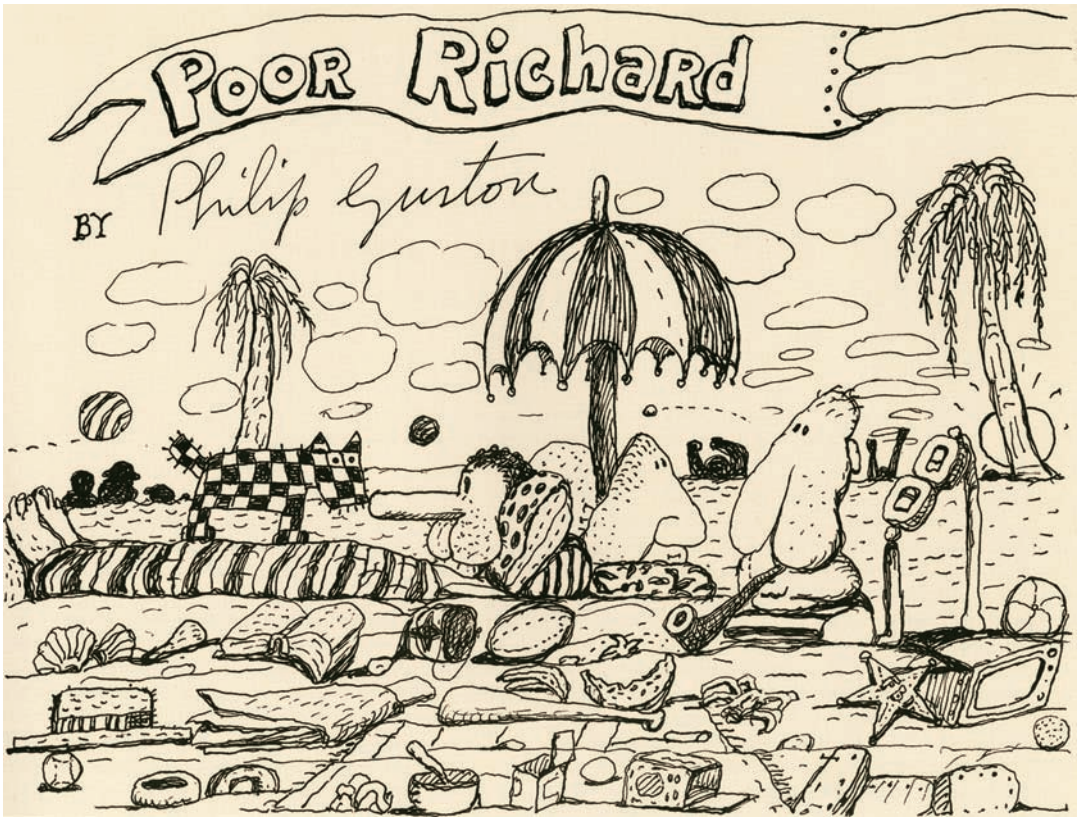 POOR RichaRd
BY Philip Guston